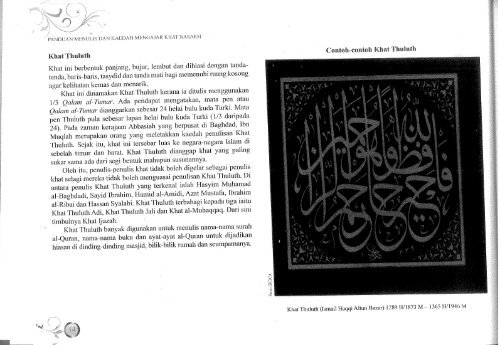 PANDUAN MENULIS DAN KAEDAH MENGAJAR KHAT NASAKH
Khat Thuluth
Khat ini berbentuk panjang, bujur, lembut dan dihiasi dengan tanda-
tanda, baris-baris, tasydid dan tanda mati bagi memenuhi ruang kosong
agar kelihatan kemas dan menarik.
Khat ini dinamakan Khat Thuluth kerana ia ditulis menggunakan
1/3 Qalam al-Tumar. Ada pendapat mengatakan, mata pen atau
Qalam al-Tumar dianggarkan sebesar 24 helai bulu kuda Turki. Mata
pen Thuluth pula sebesar lapan helai bulu kuda Turki (1/3 daripada
24). Pada zaman kerajaan Abbasiah yang berpusat di Baghdad, Ibn
Muqlah merupakan orang yang meletakkan kaedah penulisan Khat
Thuluth. Sejak itu, khat ini tersebar luas ke negara-negara Islam di
sebelah timur dan barat. Khat Thuluth dianggap khat yang paling
sukar sama ada dari segi bentuk mahupun susunannya.
Oleh itu, penulis-penulis khat tidak boleh digelar sebagai penulis
khat selagi mereka tidak boleh menguasai penulisan Khat Thuluth. Di
antara penulis Khat Thuluth yang terkenal ialah Hasyim Muhamad
al-Baghdadi, Sayid Ibrahim, Humid al-Amidi, Azat Mustafa, Ibrahim
al-Rifai dan Hassan Syalabi. Khat Thuluth terbahagi kepada tiga iaitu
Khat Thuluth Adi, Khat Thuluth Jali dan Khat al-Muhaqqaq. Dari sini
timbulnya Khat Ijazah.
Khat Thuluth banyak digunakan untuk menulis nama-nama surah
al-Quran, nama-nama buku dan ayat-ayat al-Quran untuk dijadikan
hiasan di dinding-dinding masjid, bilik-bilik rumah dan seumpamanya.
14
Contoh-contoh Khat Thuluth
Khat Thuluth (Ismail Haqqi Altun Bezer) 1289 H/1873 M – 1365 H/1946 M